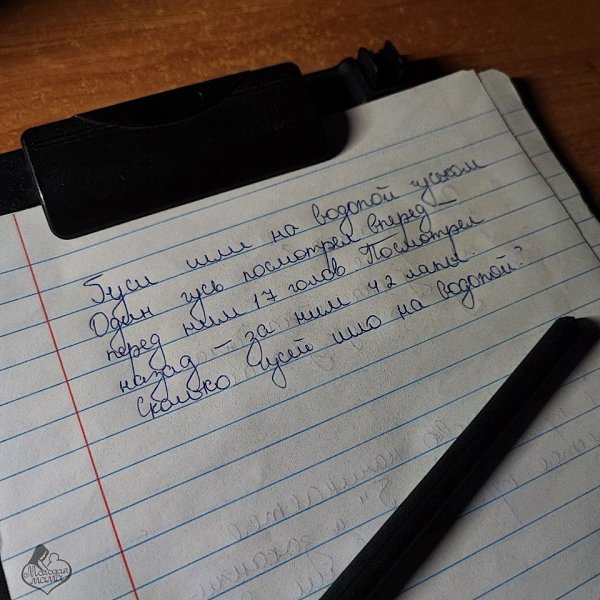 Гуси шли на водопой гуськом
Один гусь посмотрел вперед –
перед ним 17 голов Посмотрел
назад – за ним 42 лапы.
Сколько гусей шло на водопой?
Молодая
мама